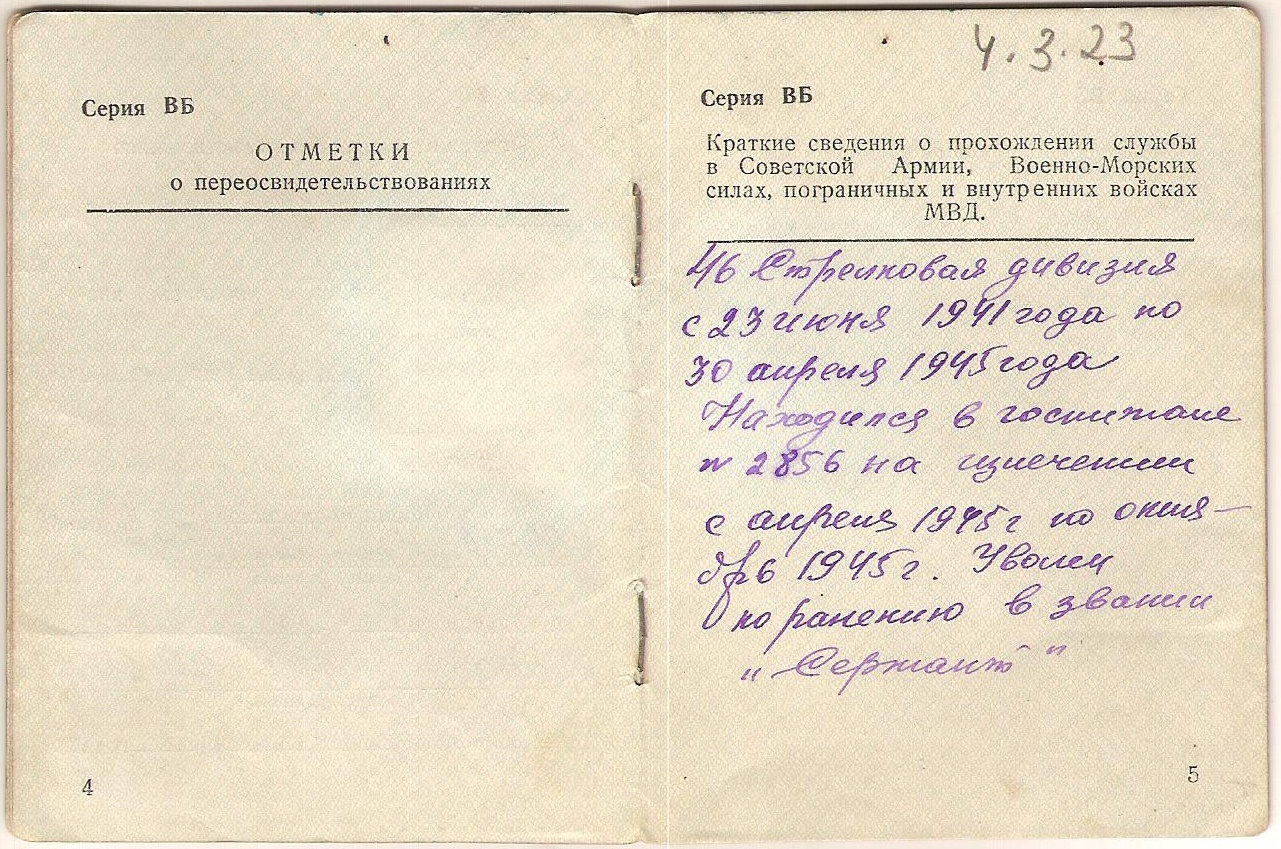 Серия ВБ
ОТМЕТКИ
о переосвидетельствованиях
4
4.3.23
Серия ВБ
Краткие сведения о прохождении службы
в Советской Армии, Военно-Морских
силах, пограничных и внутренних войсках
МВД.
46 Стрелковая дивизия
с 23 июня 1941 года по
30 апреля 1945 года
Находился в госпитале
№ 2856 на излечении
с апреля 1945 г по октя-
брь 1945 г. Уволен
по ранению в звании
"Сержант"
5